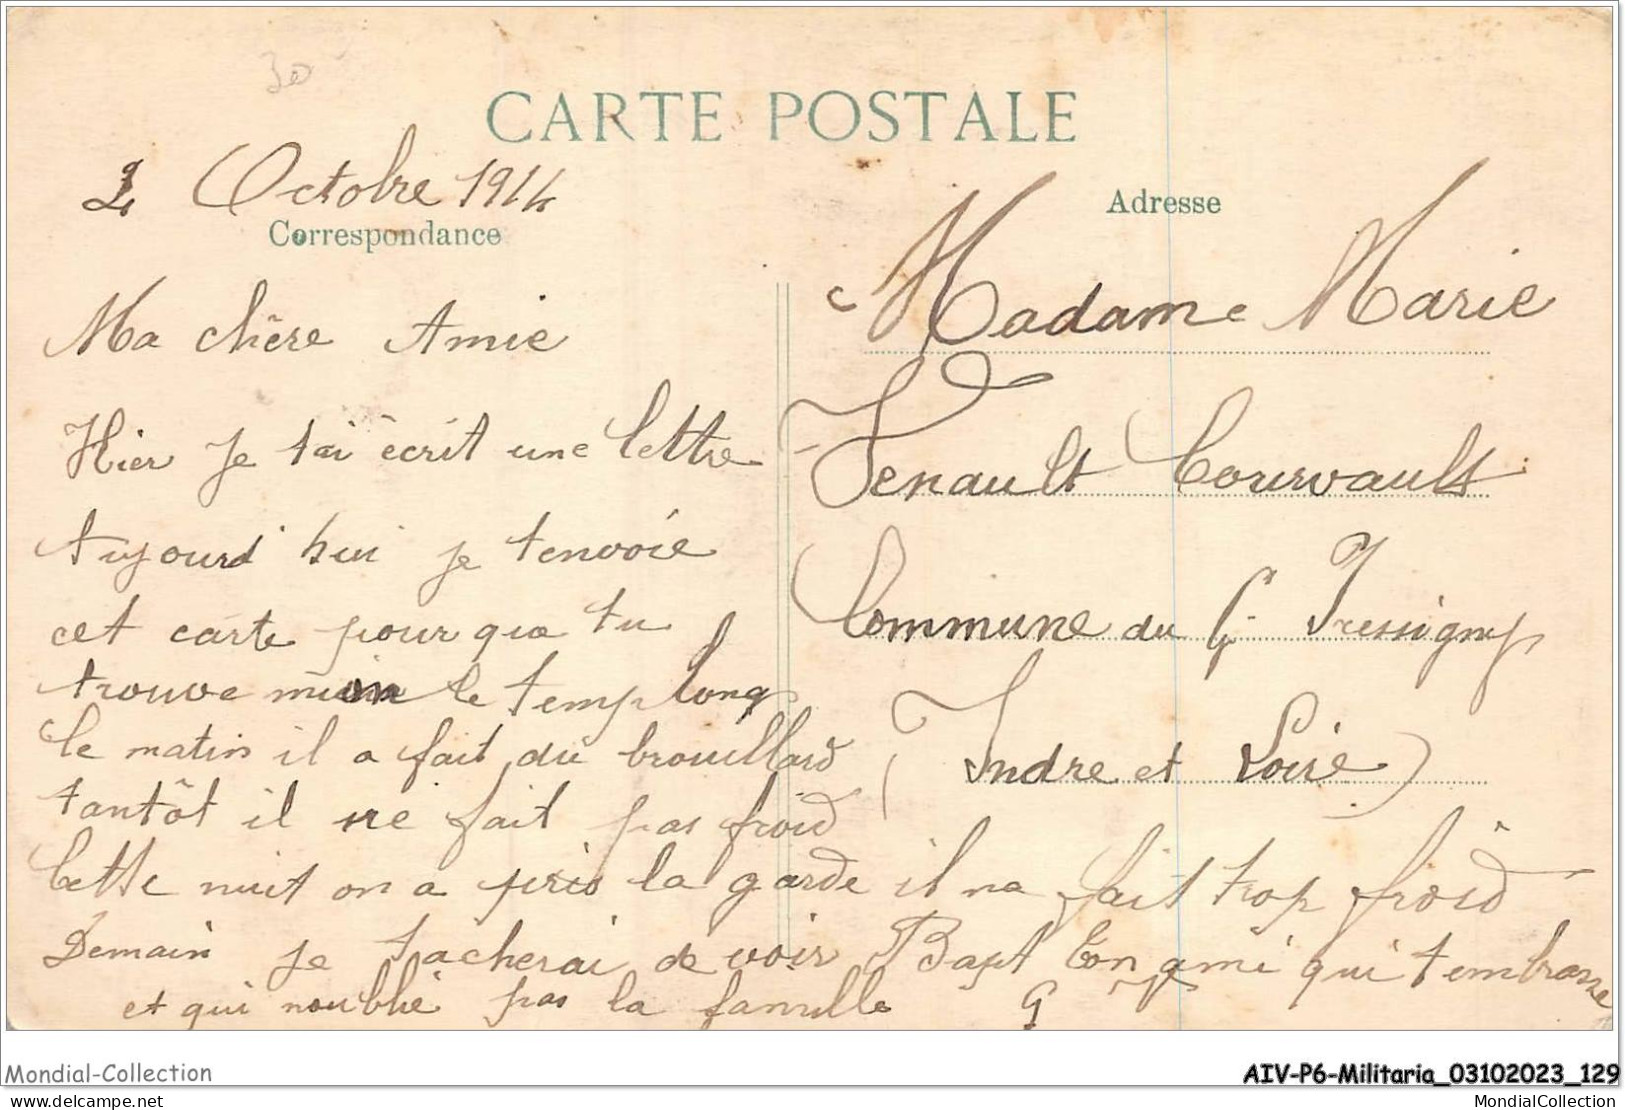 30
CARTE POSTALE
2 Octobre 1914
Correspondance
Ma chère Amie
Hier je tai écrit une lettre
Aujourd hui je tenvoie
cet carte pour que tu
trouve moin le temp long
le matin il a fait du brouillard
tantôt il ne fait pas froid
Cette nuit on a pris la garde il na fait trop froid
Demain je tacherai de voir Bapt ton ami qui tembrasse
et qui noublie pas la famille G
Adresse
Madame Marie
Fenault Courvault
Commune du G. Pressigny
(Indre et Loire)
Mondial-Collection
AIV-P6-Militaria_03102023_129
delcampe.net
MondialCollection